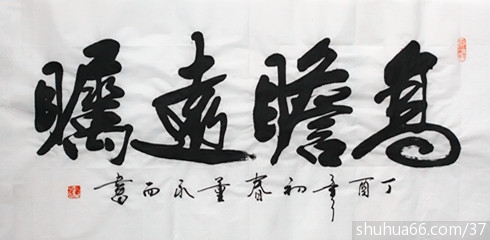 高瞻遠矚
丁酉年初春董永西書
shuhua66.com/37